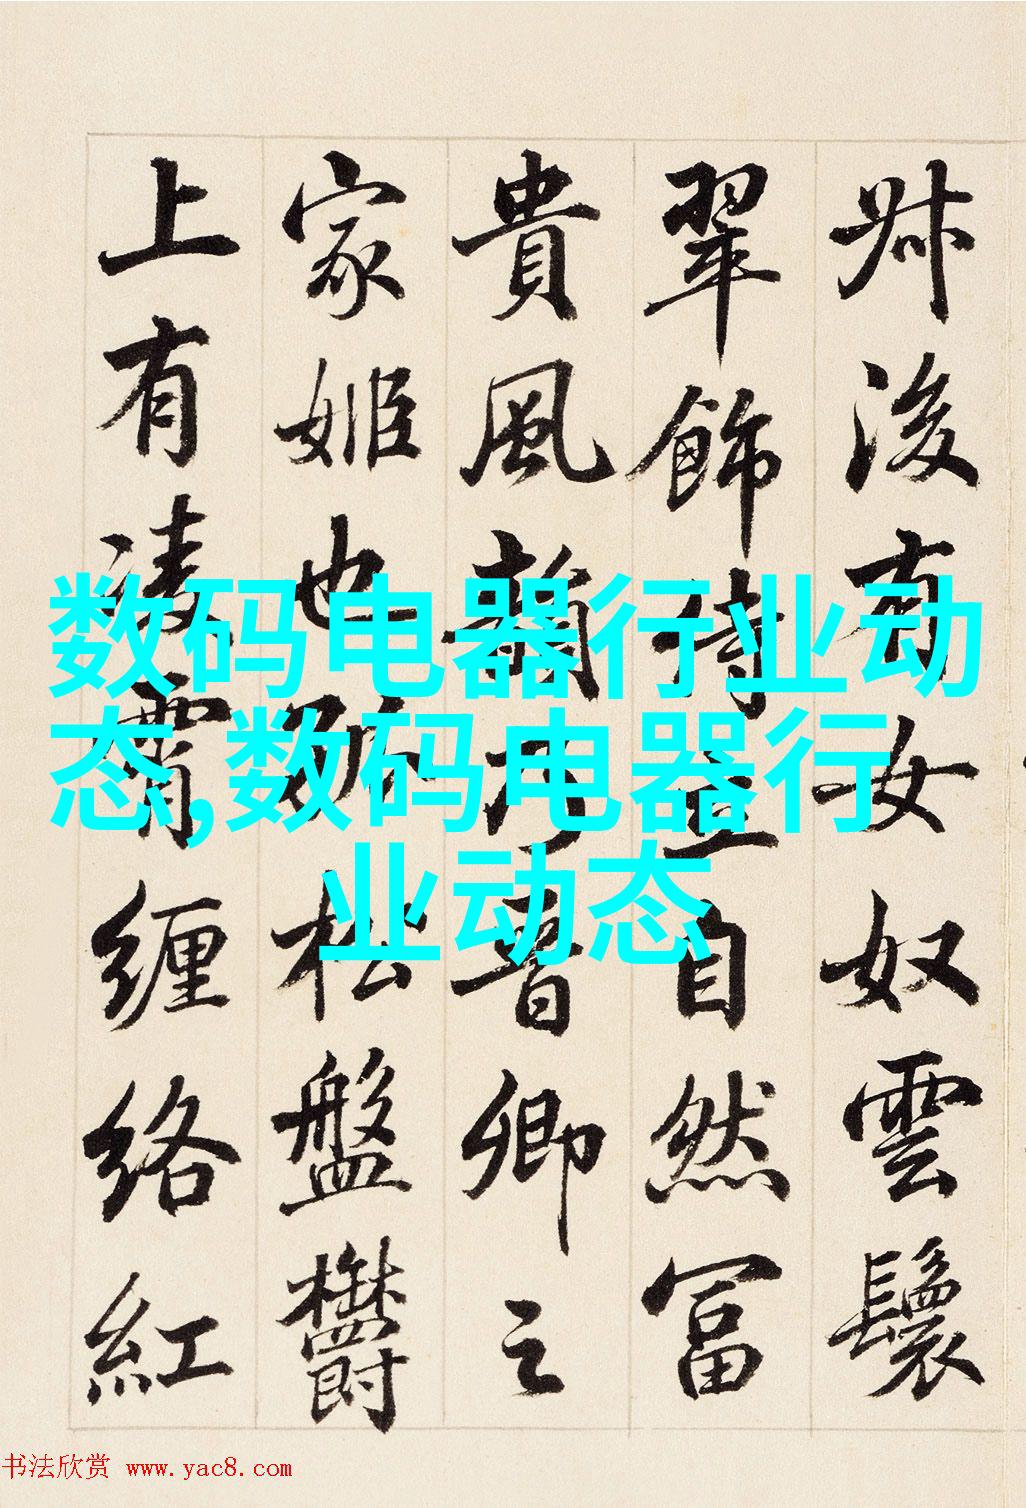 叔後有女奴雲鬟
翠飾侍立自然富
貴風韻乃晋卿之
家姬也孤松盤欝
上有凌霄纏络紅
数码电器行业动
态,数码电器行
业动态
书法欣赏 www.yac8.com